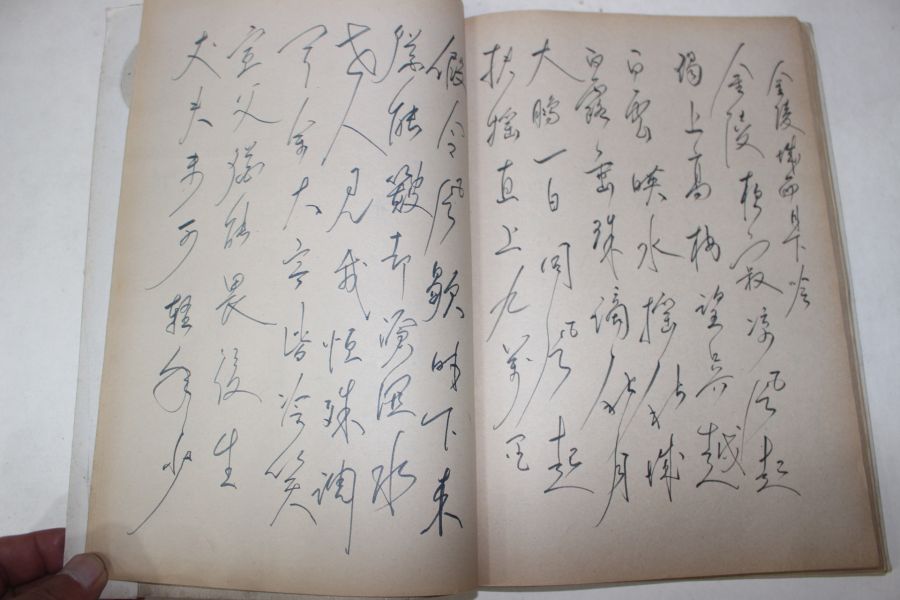 金陵城西月下吟
金陵夜寂凉風起
獨上高樓望吳越
白雲映水搖秋城
白露垂珠滴秋月
大鵬一日同風起
扶搖直上九萬里
假令風歇時下來
猶能簸却滄溟水
世人見我恒殊調
聞余大言皆冷笑
宣父猶能畏後生
丈夫未可輕年少